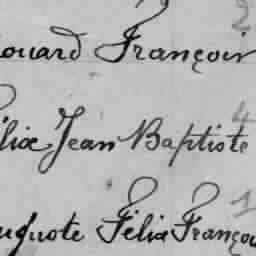 2
ouard François
4
élix Jean Baptiste
1
uguste Félix Françoi